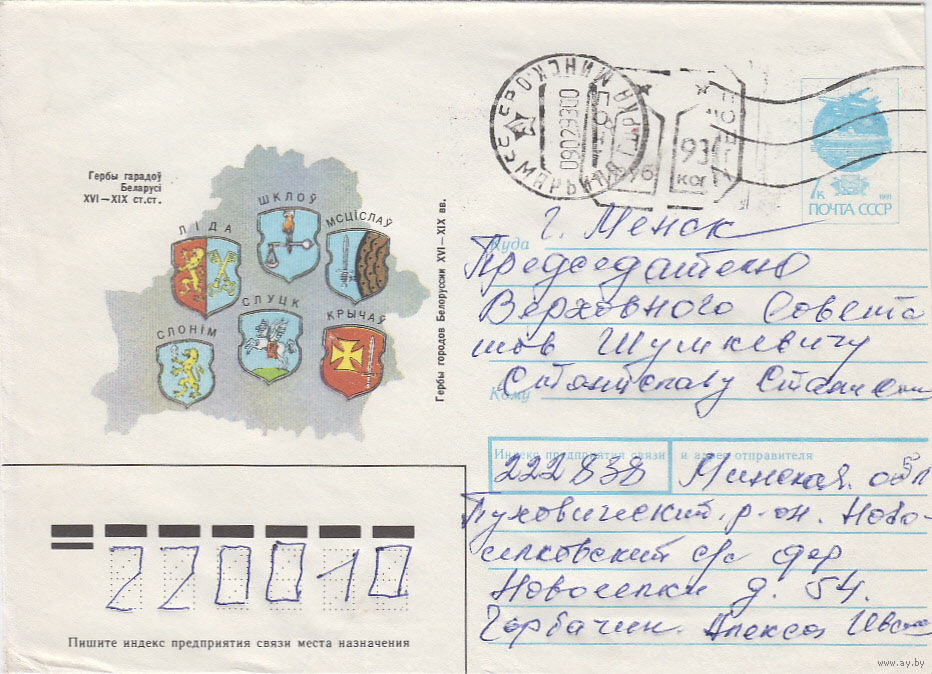 Гербы гарадоў
Беларусі
XVI—XIX ст.ст.
ЛІДА
ШКЛОЎ
МСЦІСЛАЎ
СЛОНІМ
СЛУЦК
КРЫЧАЎ
Гербы городов Белоруссии XVI—XIX вв.
МИНСК
09029300
93
коп
7к
1991
ПОЧТА СССР
Куда
г. Менск
Председателю
Верховного Совета
Шушкевичу
Кому
Станиславу
Индекс предприятия связи и адрес отправителя
222838 Минская обл
Пуховический р-он. Ново-
селковский с/с дер
Новоселки д. 54.
Горбачик Алекса
220010
Пишите индекс предприятия связи места назначения
www.ay.by